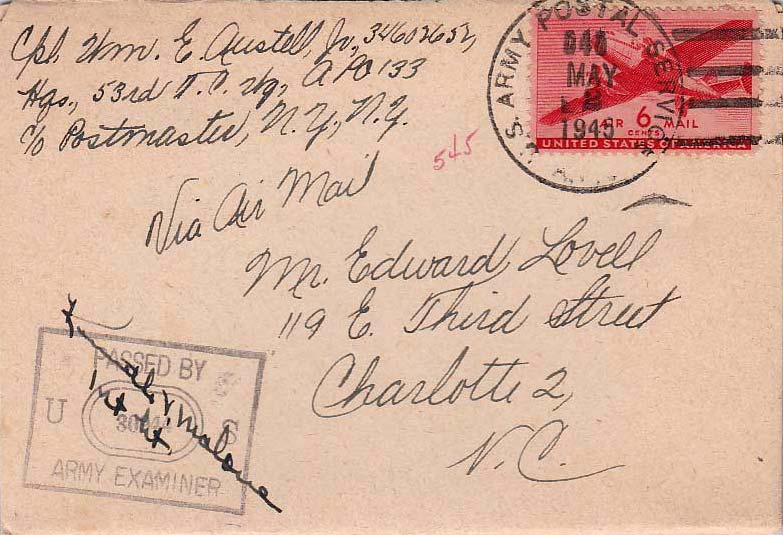 Cpl. Wm. E. Austell, Jr., 34602652,
Hqs., 53rd T.C. Wg., APO 133
c/o Postmaster, N.Y., N.Y.
U.S. ARMY POSTAL SERVICE
MAY
1945
AIR 6 MAIL
CENTS
UNITED STATES OF AMERICA
545
Via Air Mail
Mr. Edward Lovell
119 E. Third Street
Charlotte 2,
N.C.
PASSED BY
U S
ARMY EXAMINER
Malone
1st Lt